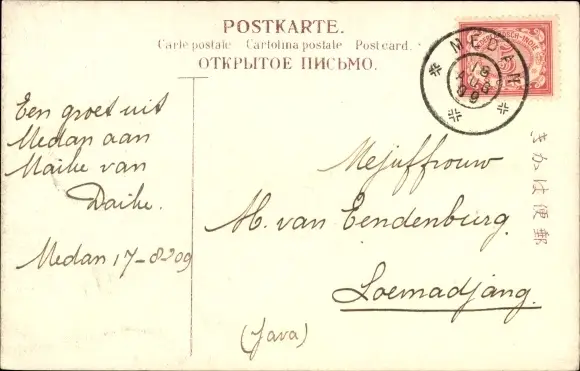 POSTKARTE.
Carte postale Cartolina postale Post card.
ОТКРЫТОЕ ПИСЬМО.
MEDAN
18
AUG
09
Een groet uit
Medan aan
Maike van
Daike.
Medan 17-8-09
Mejuffrouw
M. van Eendenburg.
Loemadjang.
(Java)
きがは便郵